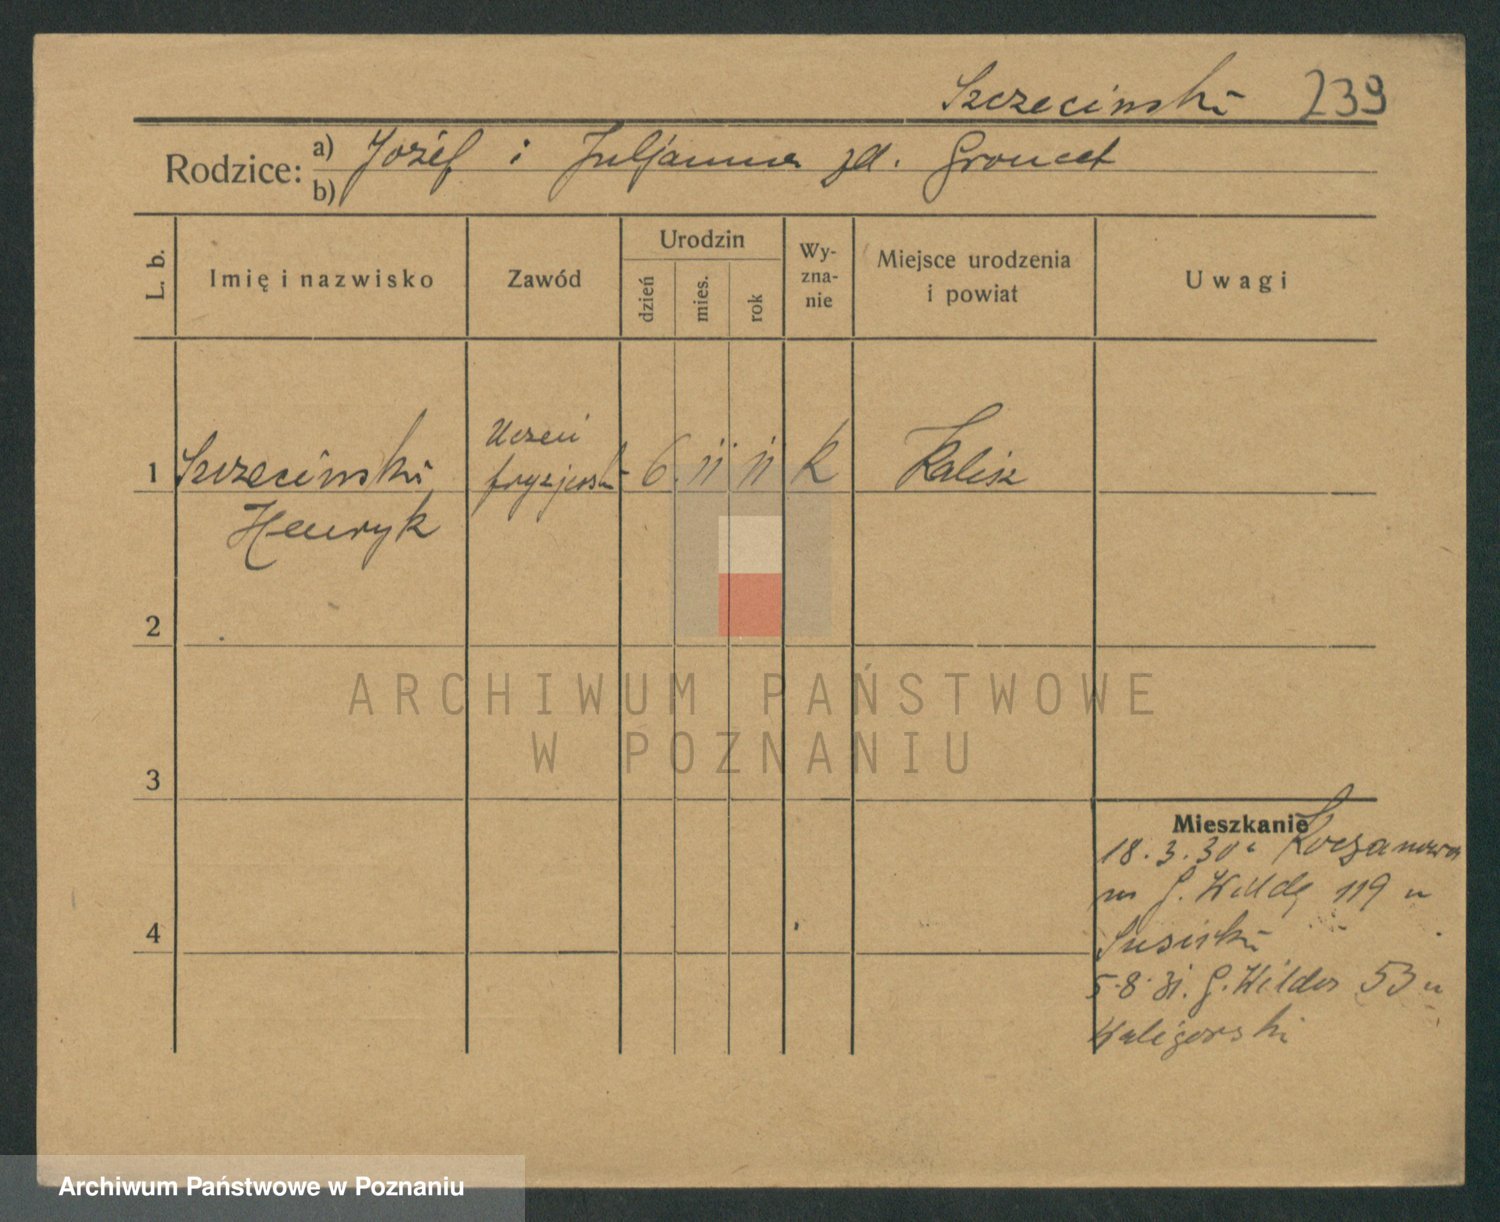 Szczeciński 239
Rodzice: a) b) Józéf i Juljanna zd. Groncet
L. b.
Imię i nazwisko
Zawód
Urodzin
dzień
mies.
rok
Wy-
zna-
nie
Miejsce urodzenia
i powiat
Uwagi
Uczeń
1 Szczeciński fryzjerski 6. 11 11 K Kalisz
Henryk
2
ARCHIWUM PAŃSTWOWE
W POZNANIU
3
Mieszkanie
18.3.30
G. Wilda 119 u
4
5.8.31. G. Wilda 53 u
Waligórski
Archiwum Państwowe w Poznaniu